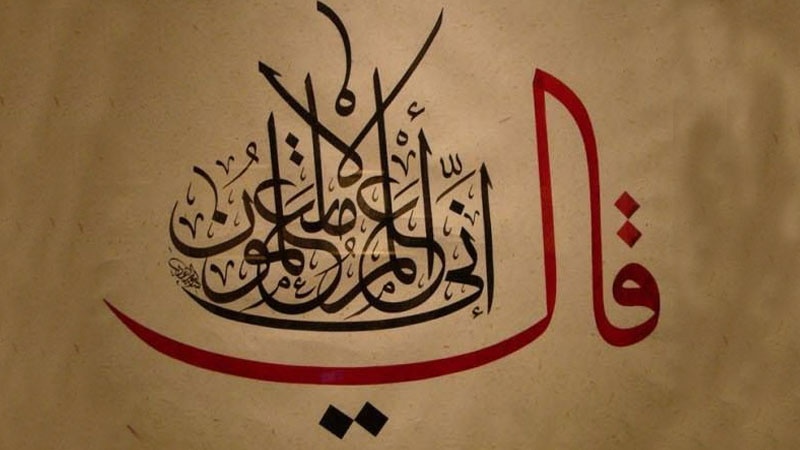 قال إنّي أعلم ما لا تعلمون